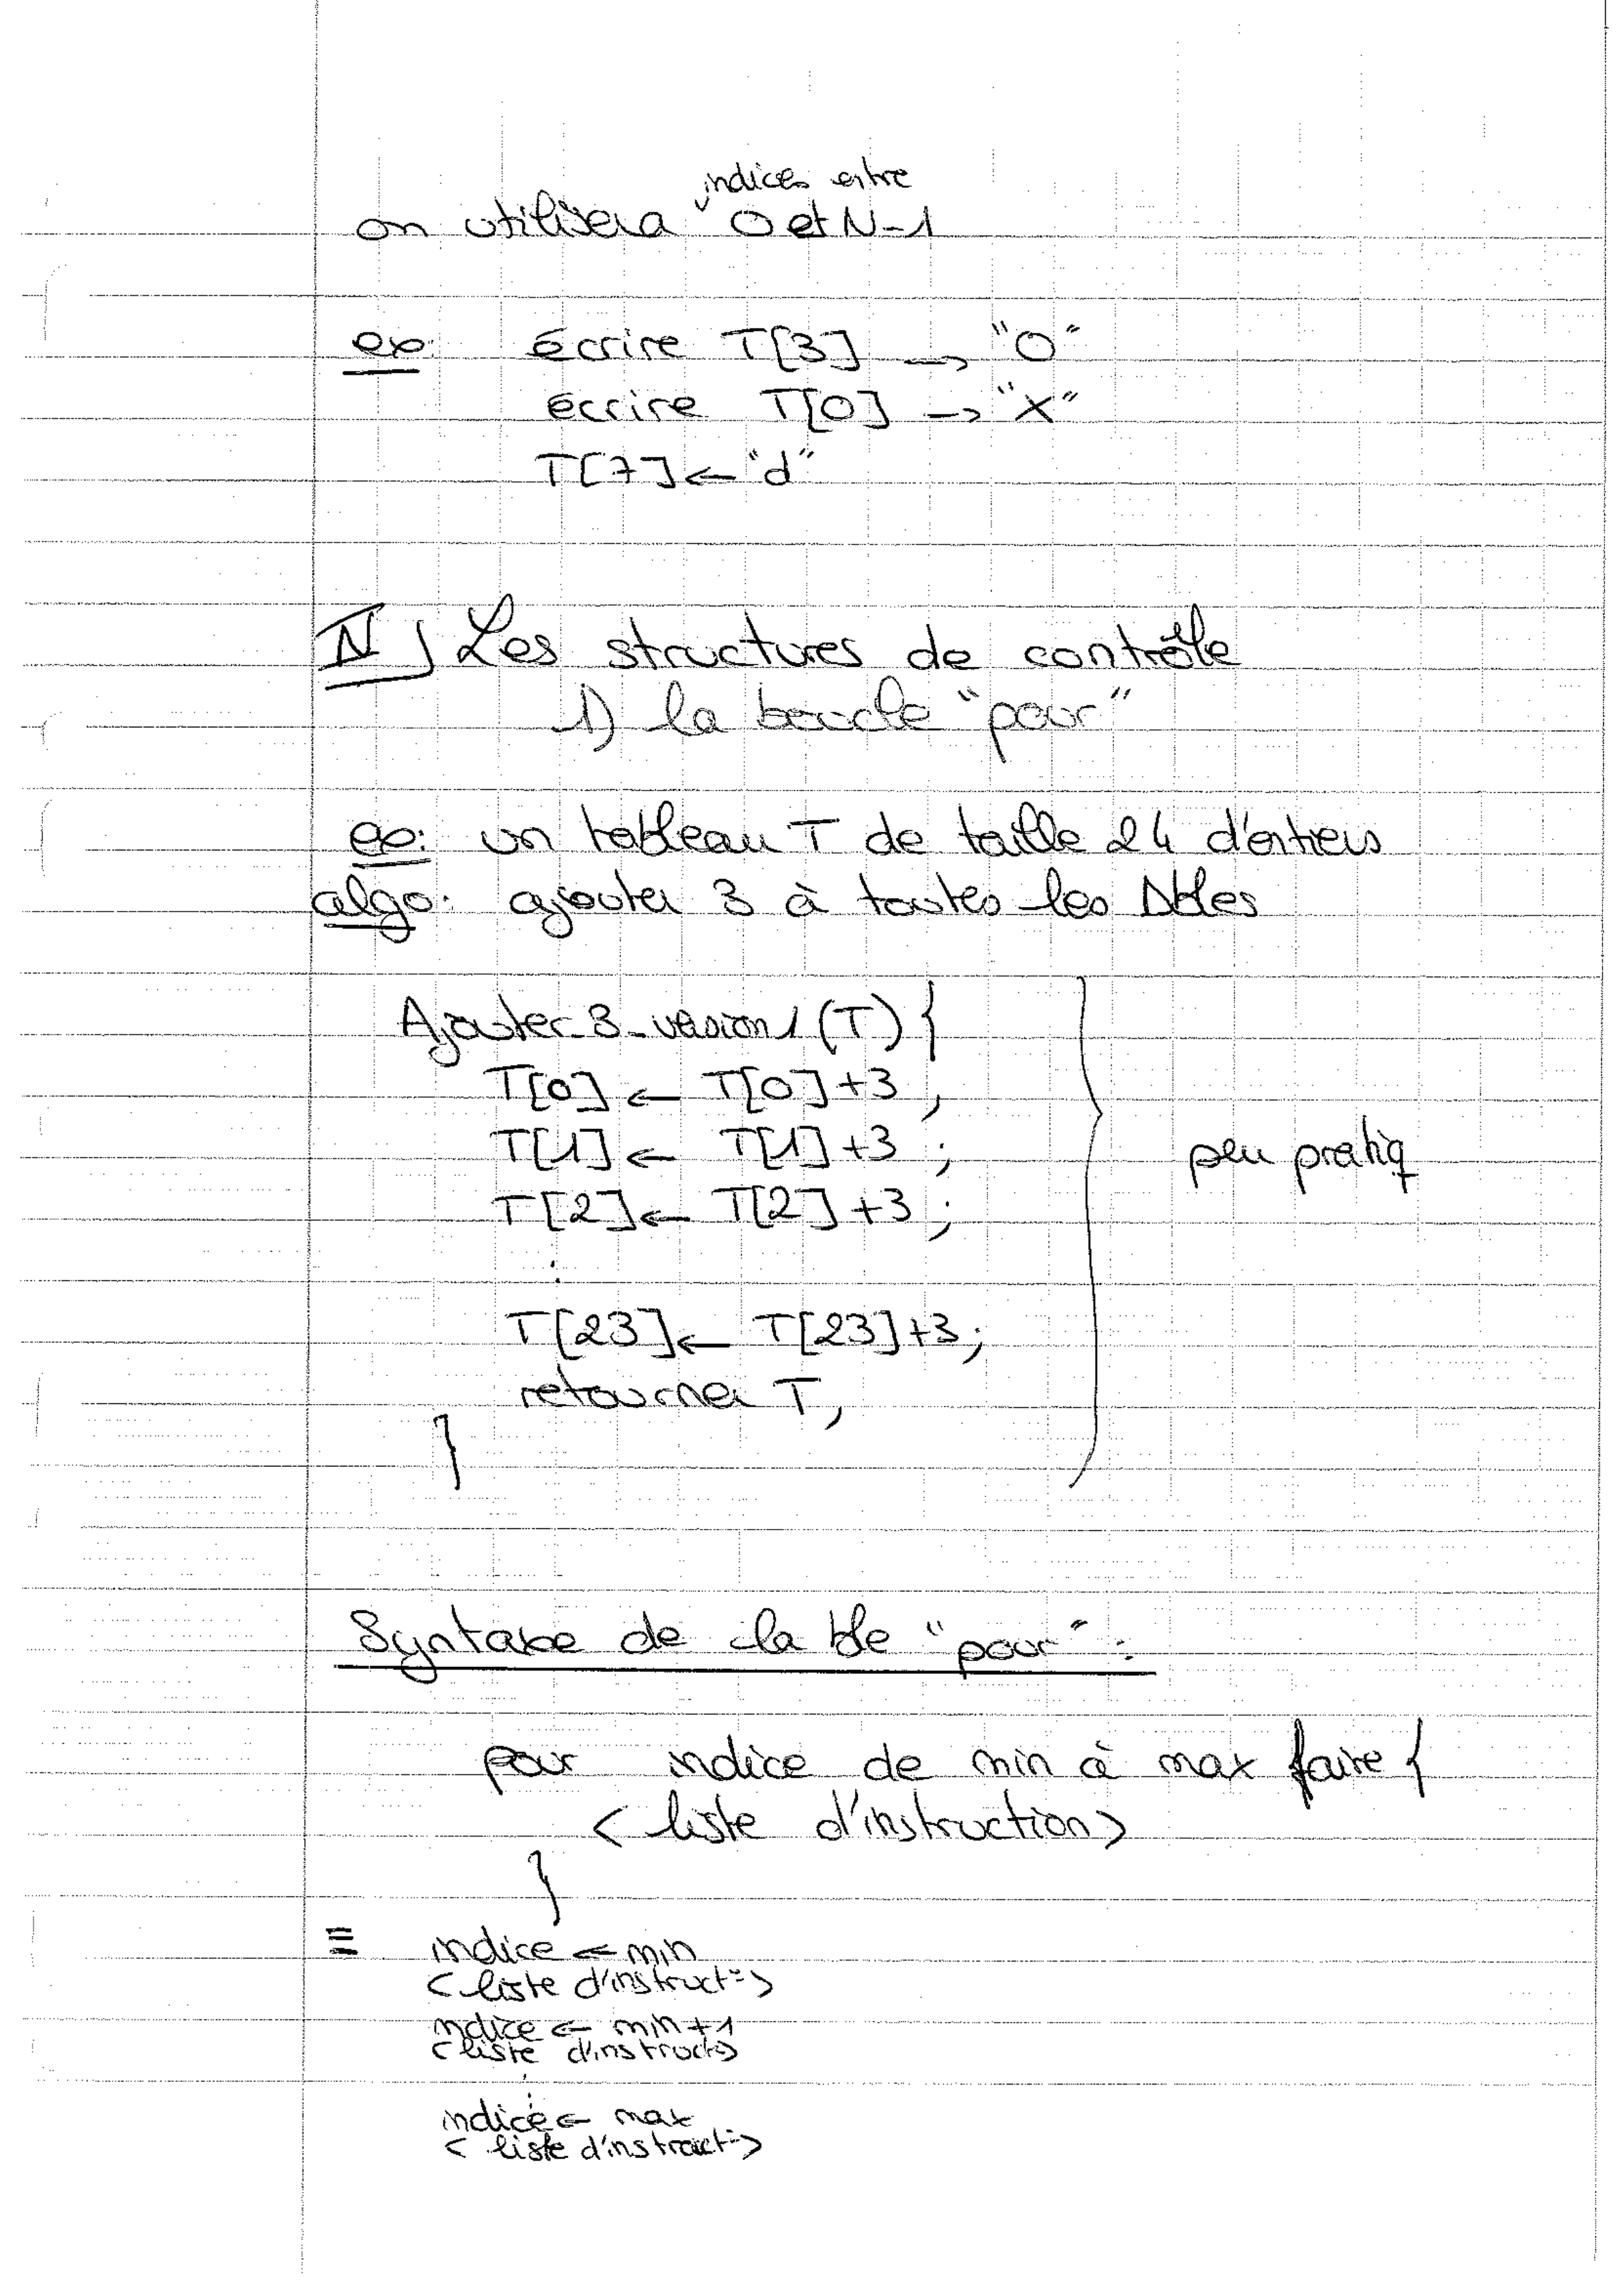 on utilisera indices entre 0 et N-1
ex: écrire T[3] → "O"
écrire T[0] → "X"
T[7] ← "d"
IV) Les structures de contrôle
1) la boucle "pour"
ex: un tableau T de taille 24 d'entiers
algo: ajouter 3 à toutes les
Ajouter_3_version1 (T) {
T[0] ← T[0]+3 ;
T[1] ← T[1]+3 ;
T[2] ← T[2]+3 ;
⋮
T[23] ← T[23]+3;
retourner T;
}
peu pratiq
Syntaxe de la ble "pour" :
pour indice de min à max faire {
< liste d'instruction>
}
≡ indice ← min
< liste d'instruct=>
indice ← min+1
< liste d'instruct>
⋮
indice ← max
< liste d'instruct=>